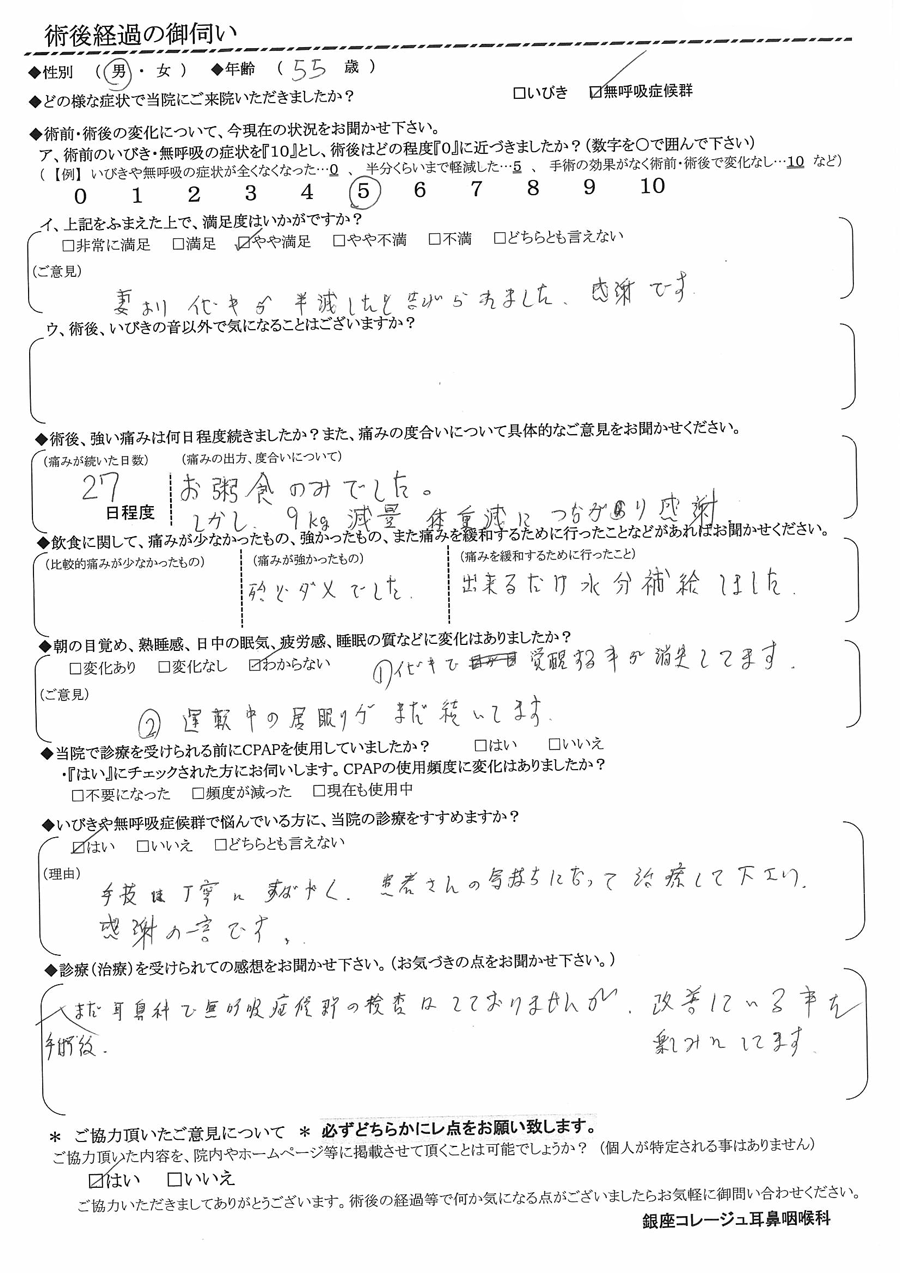 術後経過の御伺い
◆性別 (男・女) ◆年齢 (55 歳)
◆どの様な症状で当院にご来院いただきましたか? □いびき ☑無呼吸症候群
◆術前・術後の変化について、今現在の状況をお聞かせ下さい。
ア、術前のいびき・無呼吸の症状を『10』とし、術後はどの程度『0』に近づきましたか?(数字を○で囲んで下さい)
(【例】いびきや無呼吸の症状が全くなくなった…0 、 半分くらいまで軽減した…5 、 手術の効果がなく術前・術後で変化なし…10 など)
0 1 2 3 4 5 6 7 8 9 10
イ、上記をふまえた上で、満足度はいかがですか?
□非常に満足 □満足 ☑やや満足 □やや不満 □不満 □どちらとも言えない
(ご意見)
妻より イビキが 半減したと告げられました、感謝です
ウ、術後、いびきの音以外で気になることはございますか?
◆術後、強い痛みは何日程度続きましたか?また、痛みの度合いについて具体的なご意見をお聞かせください。
(痛みが続いた日数) (痛みの出方、度合いについて)
27 お粥食のみでした。
日程度 しかし、9kg 減量 体重減につながり感謝
◆飲食に関して、痛みが少なかったもの、強かったもの、また痛みを緩和するために行ったことなどがあればお聞かせください。
(比較的痛みが少なかったもの) (痛みが強かったもの) (痛みを緩和するために行ったこと)
殆どダメでした. 出来るだけ水分補給しました.
◆朝の目覚め、熟睡感、日中の眠気、疲労感、睡眠の質などに変化はありましたか?
□変化あり □変化なし ☑わからない ①イビキで 覚醒する事が消失してます.
(ご意見)
② 運転中の居眠りが まだ続いてます.
◆当院で診療を受けられる前にCPAPを使用していましたか? □はい □いいえ
・『はい』にチェックされた方にお伺いします。CPAPの使用頻度に変化はありましたか?
□不要になった □頻度が減った □現在も使用中
◆いびきや無呼吸症候群で悩んでいる方に、当院の診療をすすめますか?
☑はい □いいえ □どちらとも言えない
(理由)
手技は丁寧に すばやく. 患者さんの気持ちになって治療して下さい.
感謝の一言です.
◆診療(治療)を受けられての感想をお聞かせ下さい。(お気づきの点をお聞かせ下さい。)
まだ耳鼻科で無呼吸症候群の検査はしておりませんが. 改善している事を
手術後. 楽しみにしてます.
* ご協力頂いたご意見について * 必ずどちらかにレ点をお願い致します。
ご協力頂いた内容を、院内やホームページ等に掲載させて頂くことは可能でしょうか? (個人が特定される事はありません)
☑はい □いいえ
ご協力いただきましてありがとうございます。術後の経過等で何か気になる点がございましたらお気軽に御問い合わせください。
銀座コレージュ耳鼻咽喉科